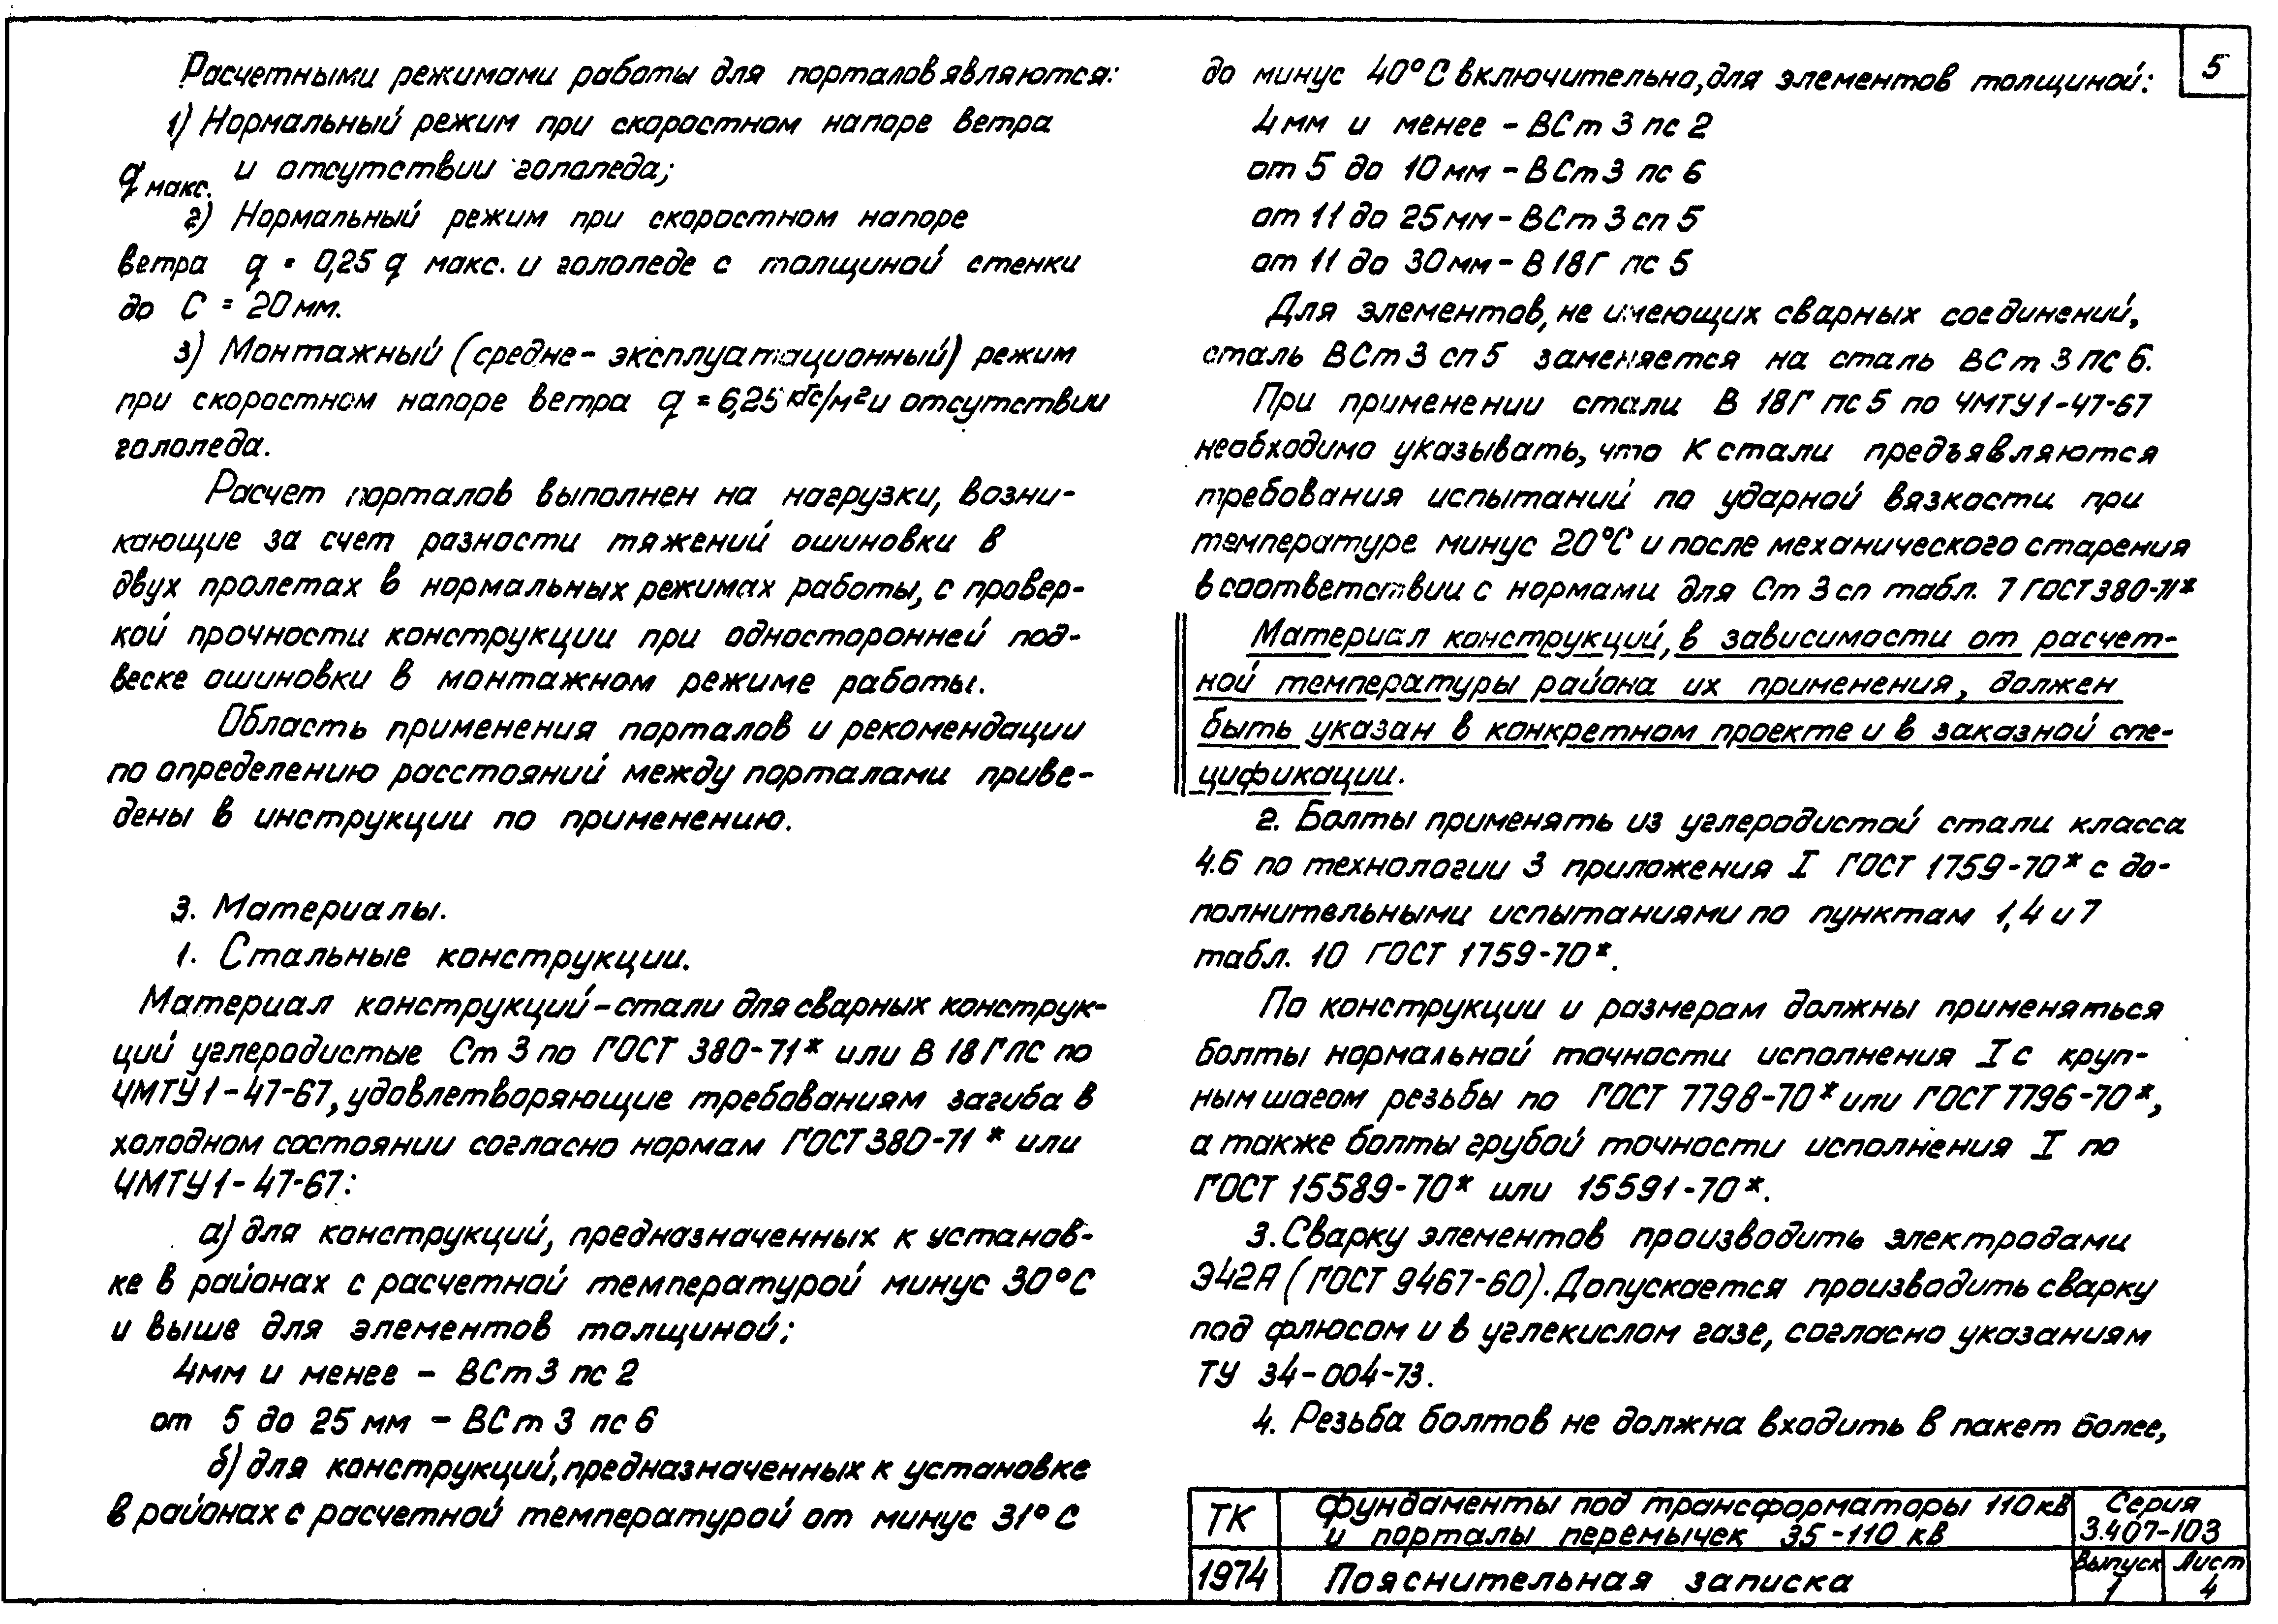 Расчетными режимами работы для порталов являются:
1) Нормальный режим при скоростном напоре ветра
q макс. и отсутствии гололеда;
2) Нормальный режим при скоростном напоре
ветра q = 0,25 q макс. и гололеде с толщиной стенки
до С = 20 мм.
3) Монтажный (средне-эксплуатационный) режим
при скоростном напоре ветра q = 6,25 кгс/м2 и отсутствии
гололеда.
Расчет порталов выполнен на нагрузки, возни-
кающие за счет разности тяжений ошиновки в
двух пролетах в нормальных режимах работы, с провер-
кой прочности конструкции при односторонней под-
веске ошиновки в монтажном режиме работы.
Область применения порталов и рекомендации
по определению расстояний между порталами приве-
дены в инструкции по применению.
3. Материалы.
1. Стальные конструкции.
Материал конструкций - стали для сварных конструк-
ций углеродистые Ст 3 по ГОСТ 380-71* или В 18 Гпс по
ЧМТУ1-47-67, удовлетворяющие требованиям загиба в
холодном состоянии согласно нормам ГОСТ 380-71* или
ЧМТУ1-47-67:
а) для конструкций, предназначенных к установ-
ке в районах с расчетной температурой минус 30°С
и выше для элементов толщиной;
4мм и менее - ВСт 3 пс 2
от 5 до 25 мм - ВСт 3 пс 6
б) для конструкций, предназначенных к установке
в районах с расчетной температурой от минус 31°С
до минус 40°С включительно, для элементов толщиной:
4мм и менее - ВСт 3 пс 2
от 5 до 10 мм - ВСт 3 пс 6
от 11 до 25 мм - ВСт 3 сп 5
от 11 до 30 мм - В 18Г пс 5
Для элементов, не имеющих сварных соединений,
сталь ВСт 3 сп 5 заменяется на сталь ВСт 3 пс 6.
При применении стали В 18Г пс 5 по ЧМТУ1-47-67
необходимо указывать, что к стали предъявляются
требования испытаний по ударной вязкости при
температуре минус 20°С и после механического старения
в соответствии с нормами для Ст 3 сп табл. 7 ГОСТ 380-71*
Материал конструкций, в зависимости от расчет-
ной температуры района их применения, должен
быть указан в конкретном проекте и в заказной спе-
цификации.
2. Болты применять из углеродистой стали класса
4.6 по технологии 3 приложения I ГОСТ 1759-70* с до-
полнительными испытаниями по пунктам 1,4 и 7
табл. 10 ГОСТ 1759-70*.
По конструкции и размерам должны применяться
болты нормальной точности исполнения I с круп-
ным шагом резьбы по ГОСТ 7798-70* или ГОСТ 7796-70*,
а также болты грубой точности исполнения I по
ГОСТ 15589-70* или 15591-70*.
3. Сварку элементов производить электродами
Э42А (ГОСТ 9467-60). Допускается производить сварку
под флюсом и в углекислом газе, согласно указаниям
ТУ 34-004-73.
4. Резьба болтов не должна входить в пакет более,
5
ТК
Фундаменты под трансформаторы 110 кв
и порталы перемычек 35-110 кв
Серия
3.407-103
1974
Пояснительная записка
Выпуск
1
Лист
4